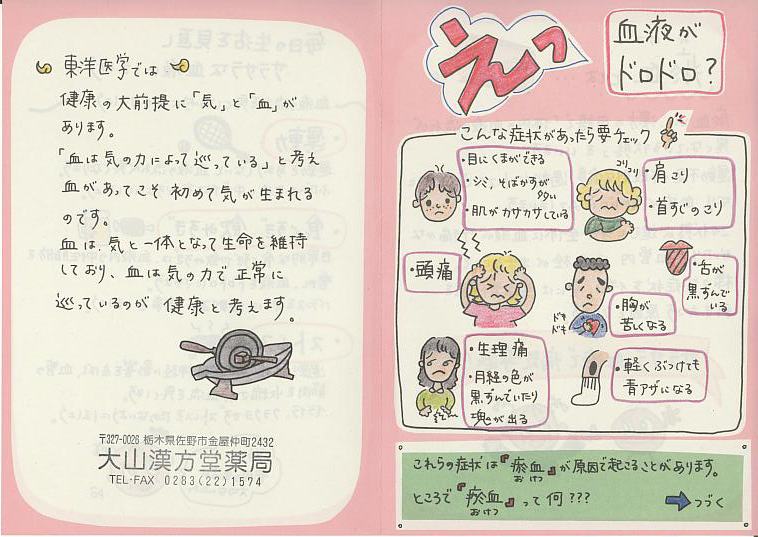 東洋医学では
健康の大前提に「気」と「血」が
あります。
「血は気の力によって巡っている」と考え
血があってこそ 初めて気が生まれる
のです。
血は、気と一体となって生命を維持
しており、血は気の力で正常に
巡っているのが 健康と考えます。
〒327-0026 栃木県佐野市金屋仲町2432
大山漢方堂薬局
TEL・FAX 0283(22)1574
えっ
血液が
ドロドロ?
こんな症状があったら要チェック
・目にくまができる
・シミ、そばかすが
多い
・肌がカサカサしている
コリコリ
・肩こり
・首すじのこり
・頭痛
ドキ
ドキ
・胸が
苦しくなる
・舌が
黒ずんで
いる
・生理痛
・月経の色が
黒ずんでいたり
塊が出る
・軽くぶつけても
青アザになる
これらの症状は『瘀血』が原因で起こることがあります。
おけつ
ところで『瘀血』って何???
おけつ
つづく